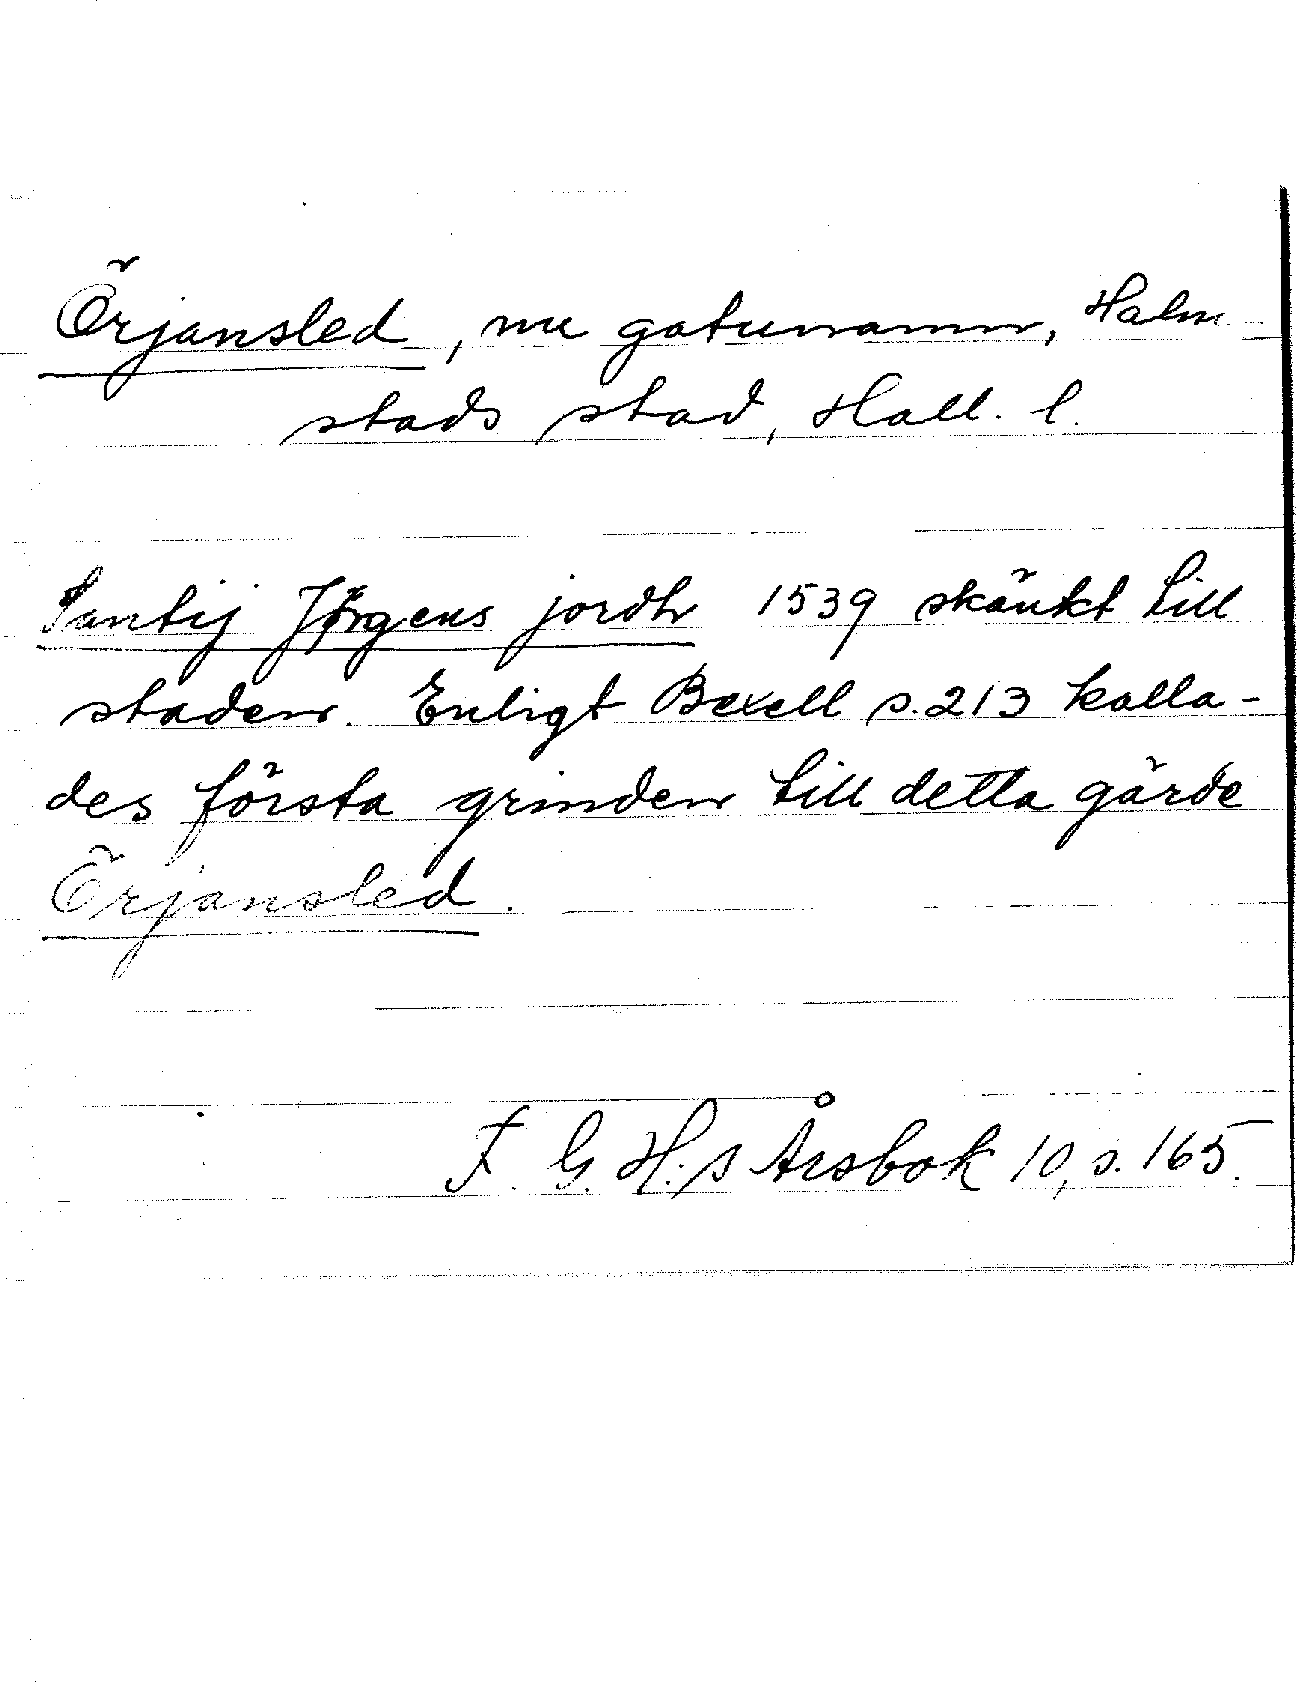 Örjansled, nu gatunamn, Halm-
stads stad, Hall. l.
Santij Jørgens jordh 1539 skänkt till
staden. Enligt Bexell s. 213 kalla-
des första grinden till detta gärde
Örjansled.
F. G. H:s Årsbok 10, s. 165.